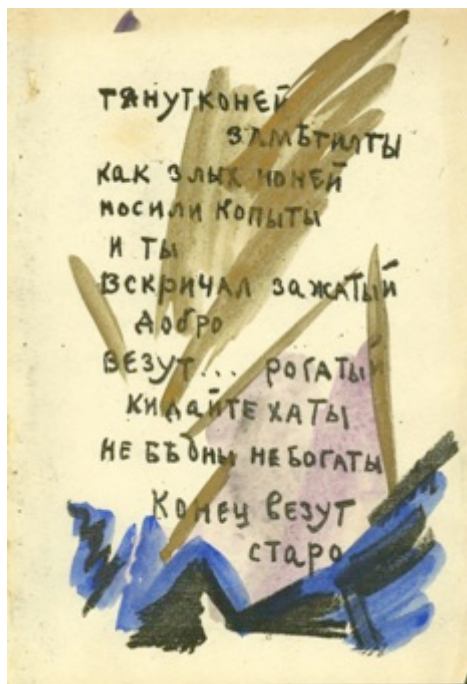 тянутконей
замѣтилты
как злых коней
носили копыты
и ты
вскричал зажатый
добро
везут... рогатый
кидайте хаты
не бѣдны не богаты
конец везут
старо